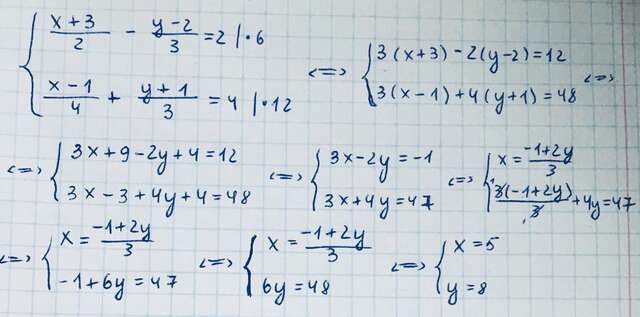 { (x+3)/2 - (y-2)/3 = 2 |·6
(x-1)/4 + (y+1)/3 = 4 |·12
<=> { 3(x+3)-2(y-2)=12
3(x-1)+4(y+1)=48 <=>
<=> { 3x+9-2y+4=12
3x-3+4y+4=48
<=> { 3x-2y=-1
3x+4y=47
<=> { x = (-1+2y)/3
3(-1+2y)/3 + 4y = 47
<=> { x = (-1+2y)/3
-1+6y=47
<=> { x = (-1+2y)/3
6y=48
<=> { x=5
y=8